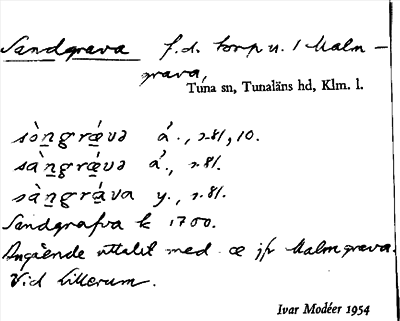 Sandgrava f.d. torp u. / Malm-
grava,
Tuna sn, Tunaläns hd, Klm. l.
sòngrávə ä., s. 81, 10.
sàngrávə ä., s. 81.
sàngráva y., s. 81.
Sandgrafva k 1700.
Angående uttalet med æ jfr Malmgrava.
Vid Lillerum.
Ivar Modéer 1954